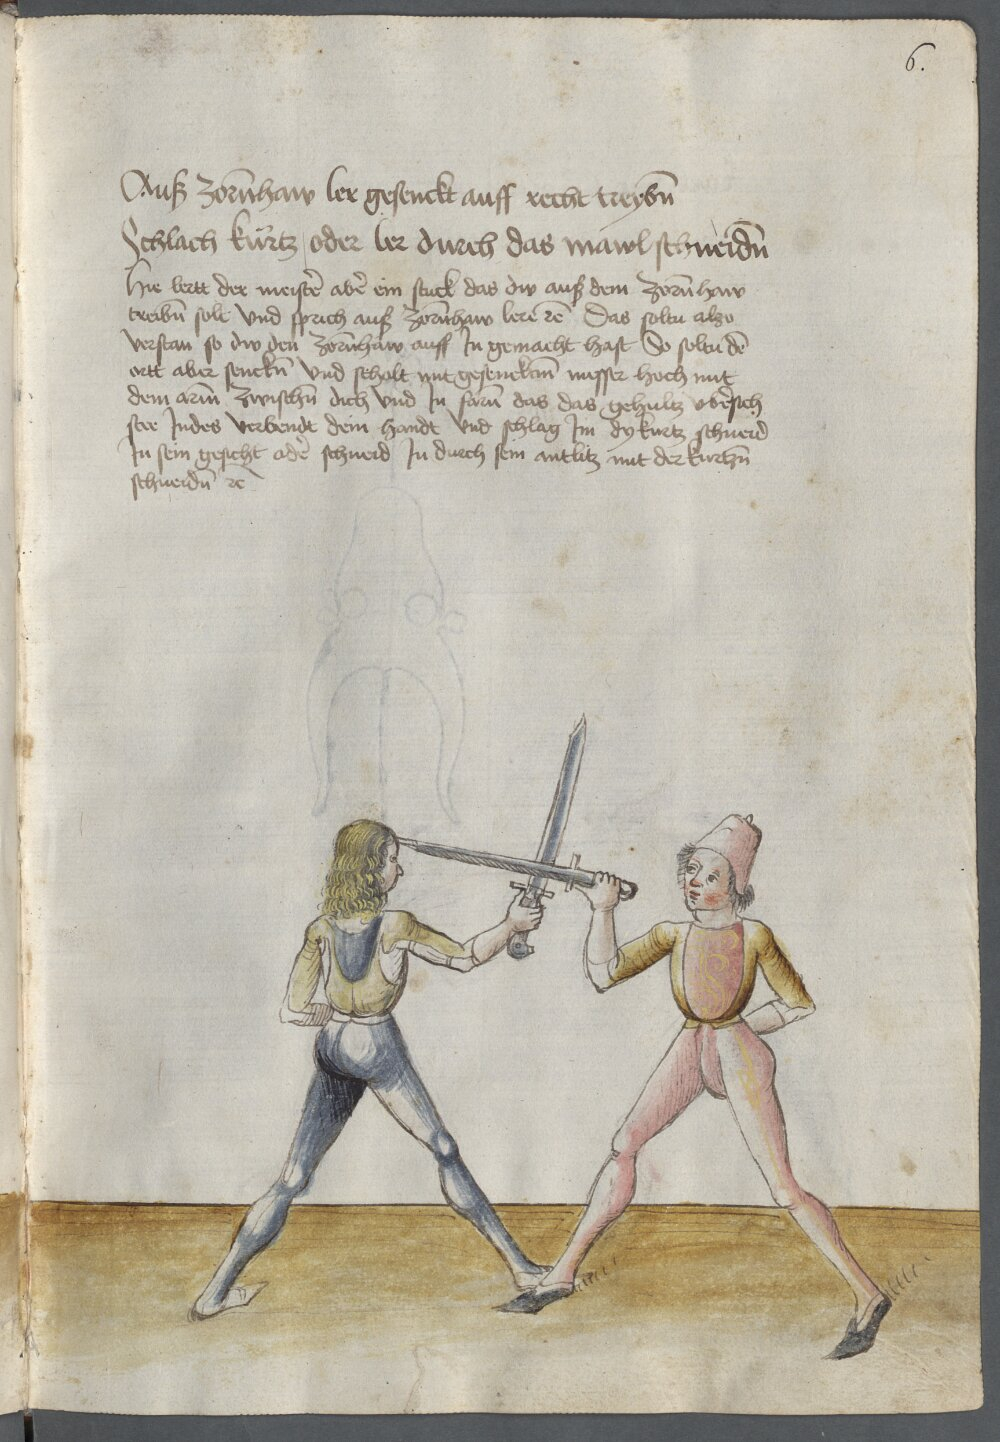 6.
Auß zorn̄haw ler gesenckt auff recht treybn̄
Schlach kürtz / oder ler durch das mawl schneidn̄
Hie lertt der meister̃ aber̃ ein stuck das dw auß dem zorn̄haw
treibn̄ solt Vnd sprich auß zorn̄haw lere rc̄ Das soltu also
verstan so dw den zorn̄haw auff In gemacht hast So soltu dē
ortt aber senckn̄ Vnd mit gesencktem messer hoch mit
dem arm̄ zwischn̄ dich vnd In farn̄ das das gehültz vbersich
stee Indes verbendt dein handt Vnd schlag Im dy kurtz schneid
In sein gesicht oder̃ schneid In durch sein antlitz mit der kurtzn̄
schneidn̄ rc̄